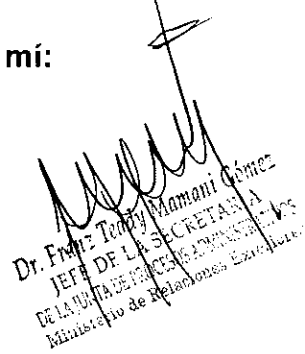 mí:
Dr. Franz Teddy Mamani Gómez
JEFE DE LA SECRETARÍA
DE LA JUNTA DE PROCESOS ADMINISTRATIVOS
Ministerio de Relaciones Exteriores